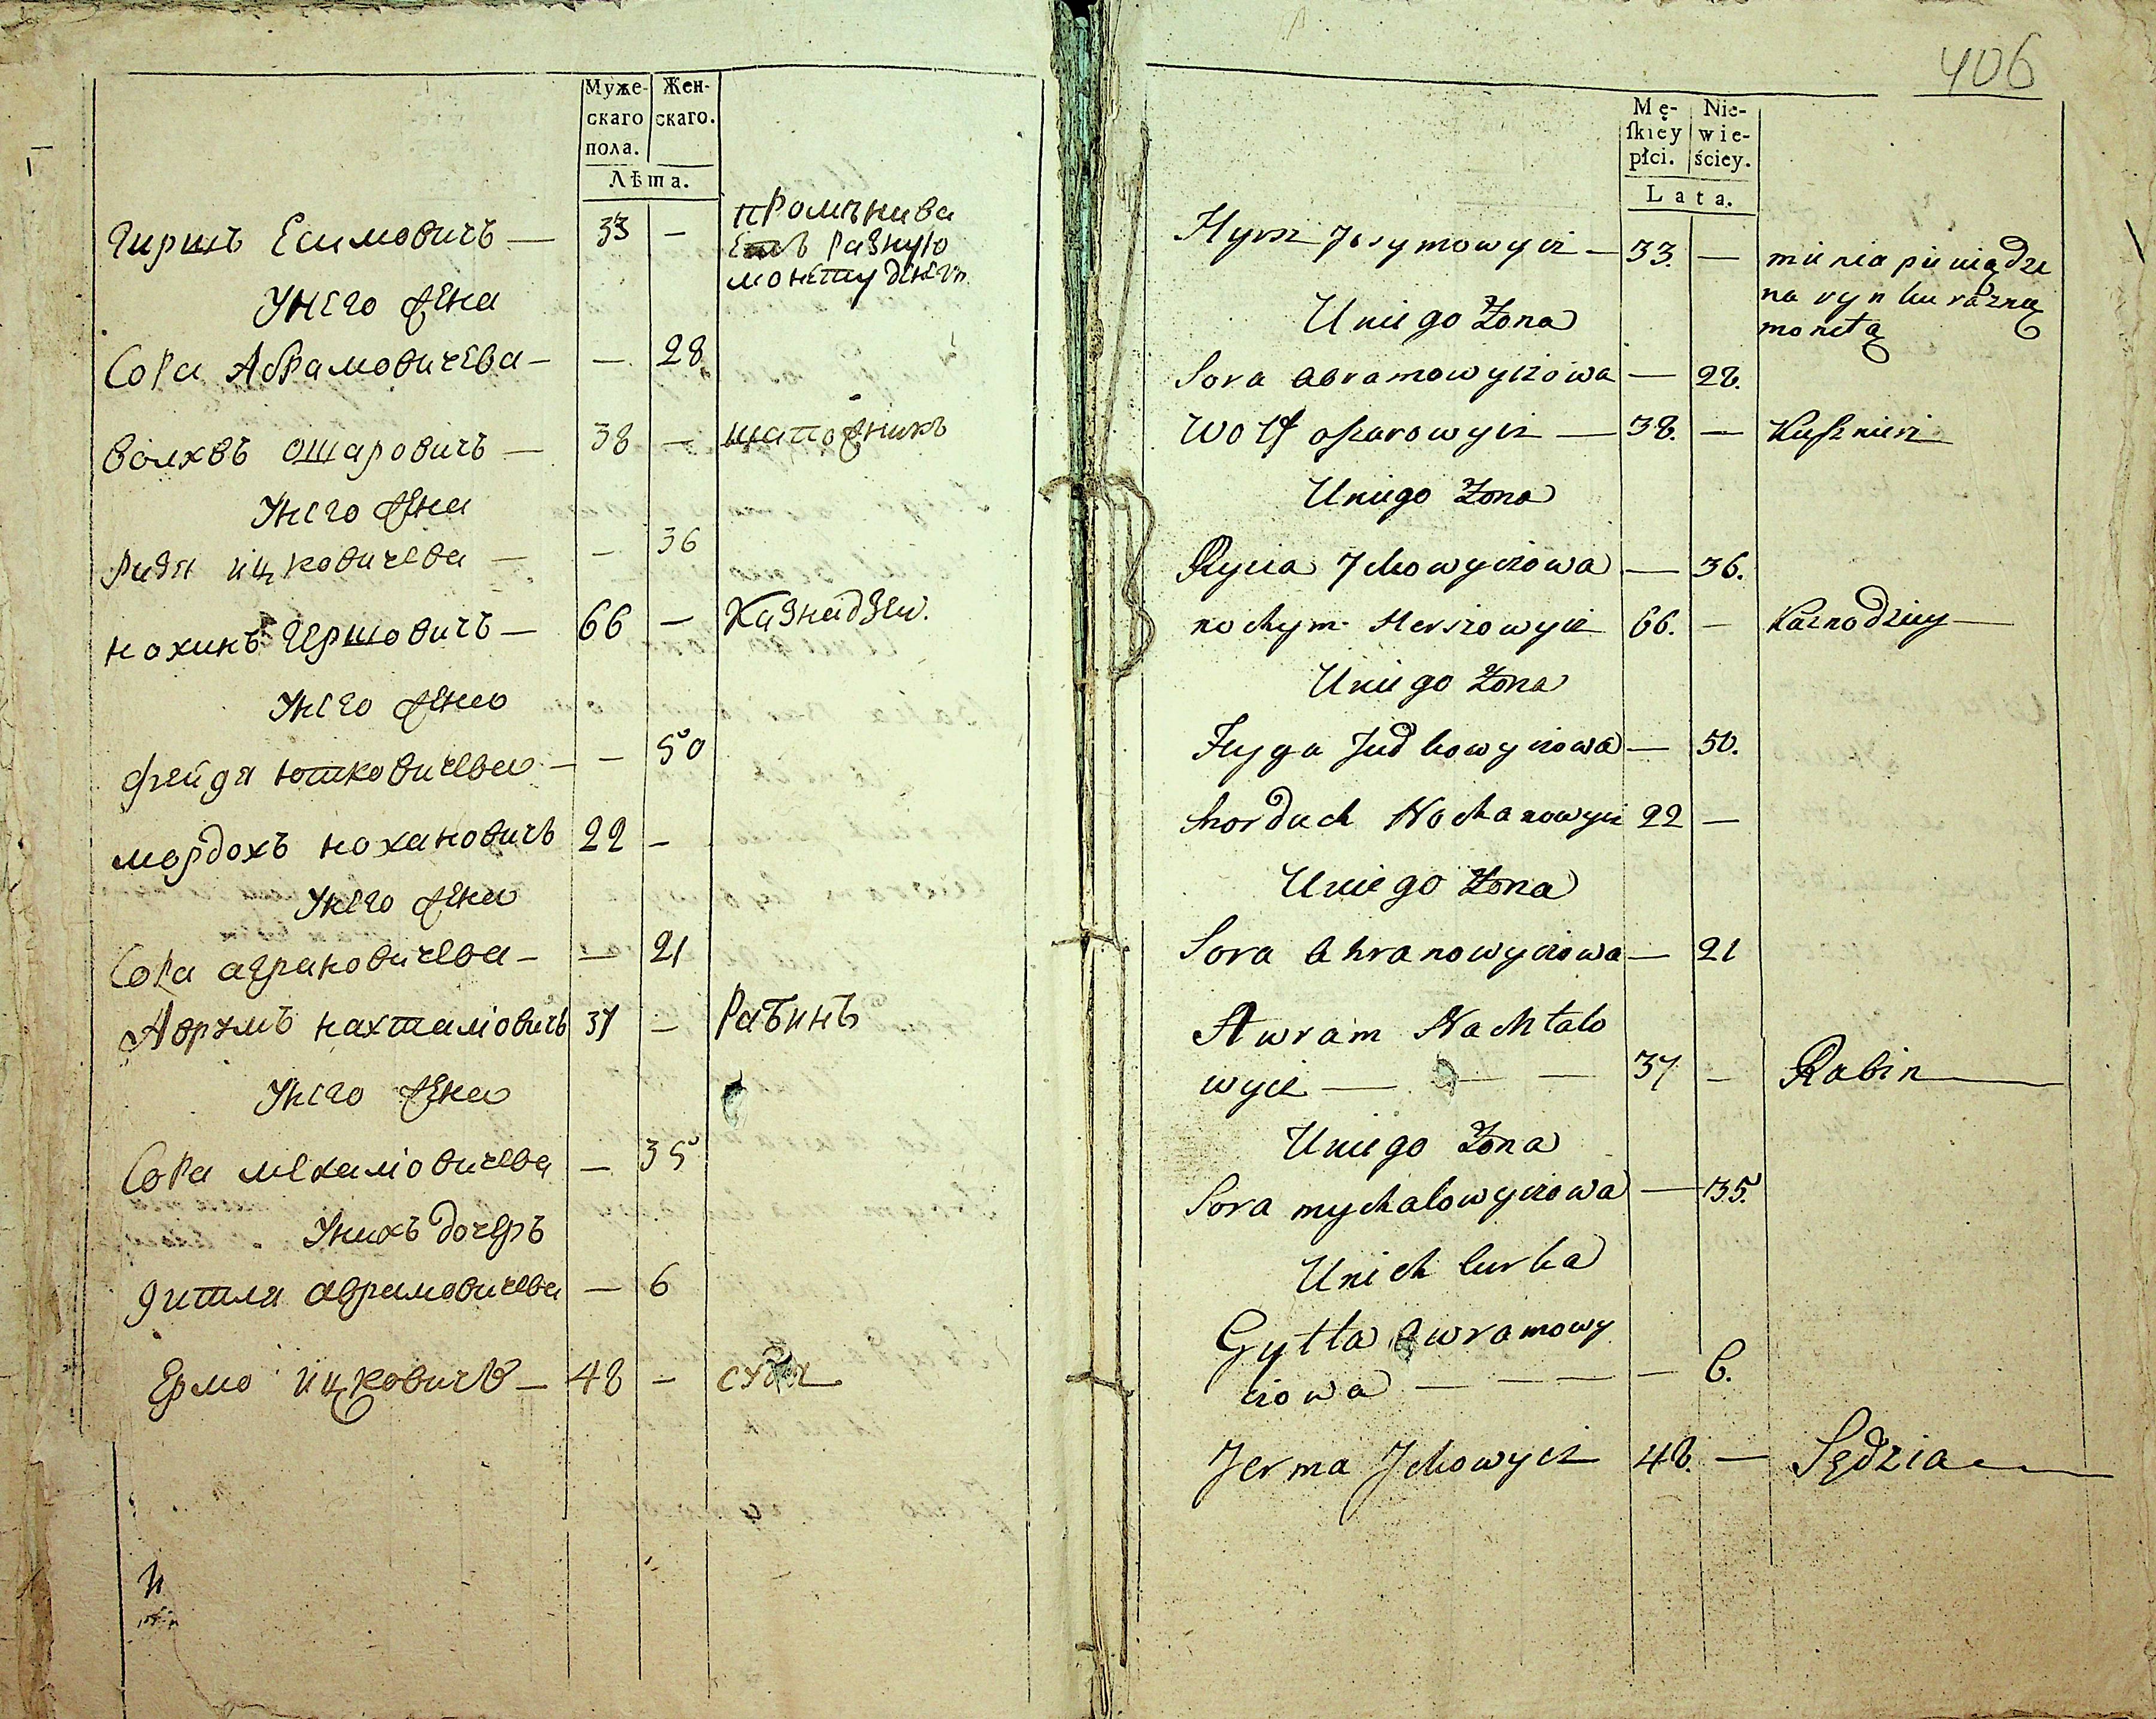 Муже-
скаго
пола.
Жен-
скаго.
Лѣта.
Гиршъ Есимовичъ — 33 —
промѣнива
етъ разную
монету денегъ
Унего жена
Сора Абрамовичева — — 28
Волхвъ ошаровичъ — 38 — шапожникъ
Унего жена
Ридя ицковичева — — 36
нохимъ Гершовичъ — 66 — Казнадзеи.
Унего жена
фейдя юшковичева — — 50
мордохъ нохановичъ 22 —
Унего жена
Сора аграновичева — — 21
Аврамъ нахталіовичъ 37 — Рабинъ
Унего жена
Сора мехаліовичева — 35
Унихъ дочеръ
гитля аврамовичева — 6
Ермо ицковичъ — 48 —
406
Mę-
ſkiey
płci.
Nie-
wie-
ściey.
Lata.
Hyrsz Jesymowycz — 33. — mienia pieniądze
na rynku rozną
monetą
Uniego Zona
Sora abramowyczowa — 28.
Wolf oszarowycz — 38. — Kuſznierz
Uniego Zona
Rycia Jckowyczowa — 36.
nochym Herszowycz 66. — Kaznodziey
Uniego Zona
Feyga Judkowyczowa — 50.
morduch Nochanowycz 22 —
Uniego Zona
Sora ahranowyczowa — 21
Awram Nachtalo
wycz — — — 37 — Rabin
Uniego Zona
Sora mychalowyczowa — 35.
Unich Curka
Gytla awramowy
czowa — — — — 6.
Jerma Jckowycz 48. — Sędzia